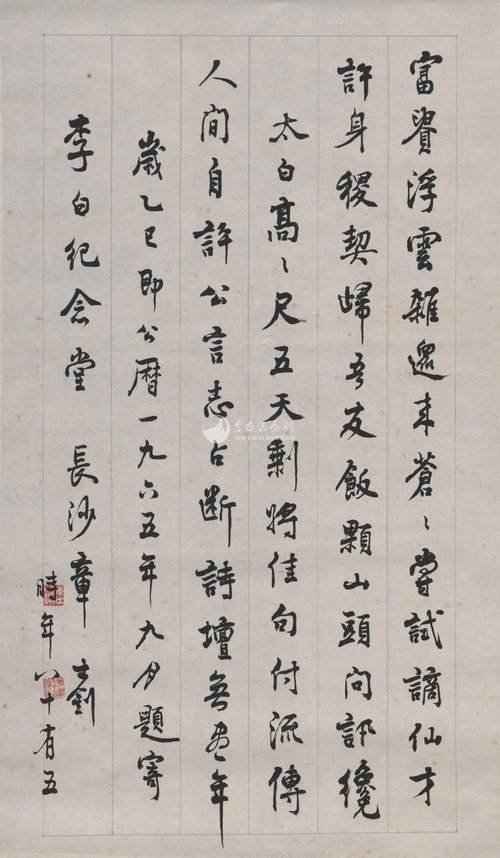 富貴浮雲雜遝来蒼〻嘗試謫仙才
許身稷契歸吾友飯顆山頭問訊纔
太白高〻尺五天剩將佳句付流傳
人間自許公言志占斷詩壇無盡年
歲乙巳即公曆一九六五年九月題寄
李白紀念堂 長沙章士釗
時年八十有五
李白纪念馆
THE LIBAI MUSEUM